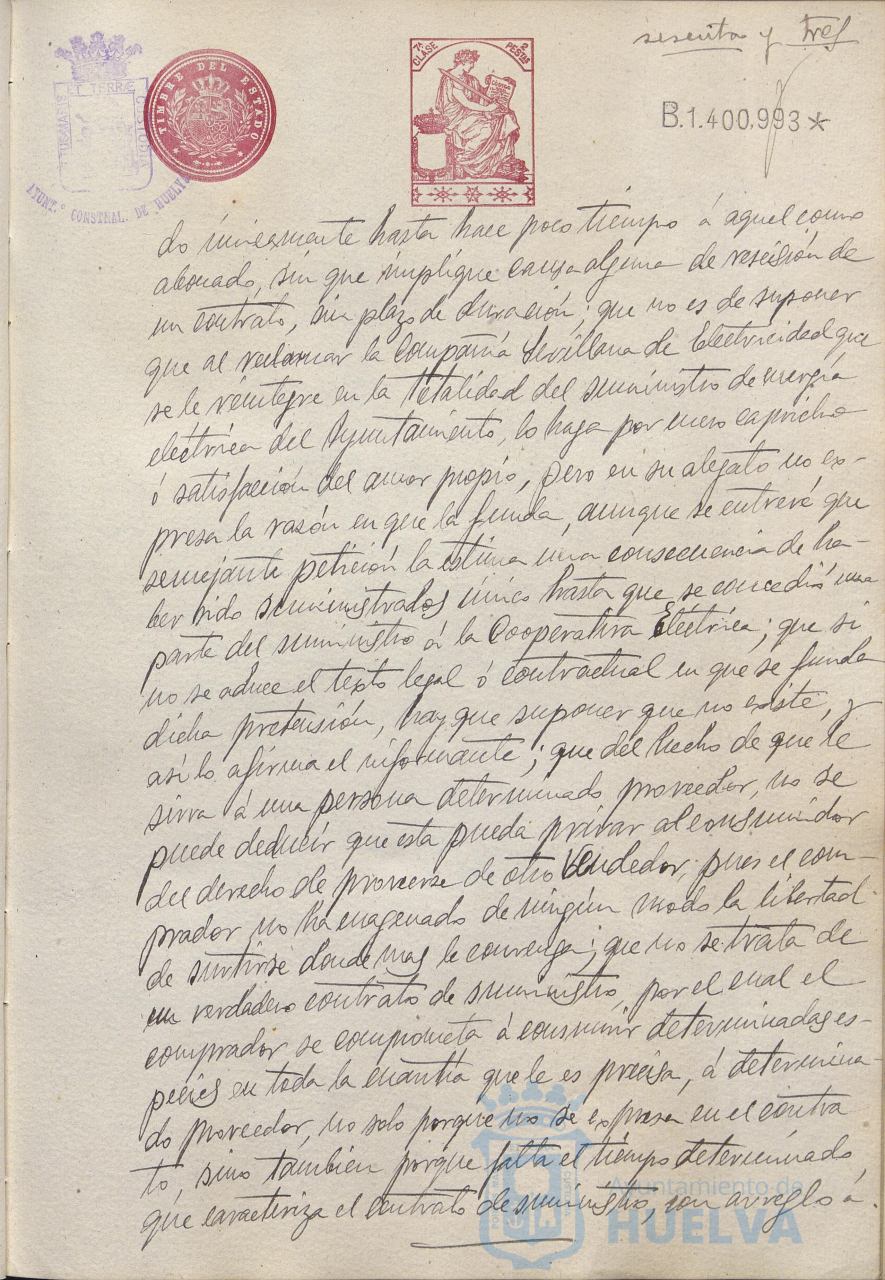 sesenta y tres
7ª CLASE
2 PESTAS
TIMBRE DEL ESTADO
ET TERRÆ
CUSTODIA
AYUNT.º CONSTNAL. DE HUELVA
B.1.400,993*
do únicamente hasta hace poco tiempo á aquel como
abonado, sin que implique causa alguna de rescisión de
un contrato, sin plazo de duración; que no es de suponer
que al reclamar la Compañía Sevillana de Electricidad que
se le reintegre en la totalidad del suministro de energía
eléctrica del Ayuntamiento, lo haga por mero capricho
ó satisfacción del amor propio, pero en su alegato no ex-
presa la razón en que la funda, aunque se entrevé que
semejante petición la estima una consecuencia de ha-
ber sido suministrador único hasta que se concedió una
parte del suministro á la Cooperativa Eléctrica; que si
no se aduce el texto legal ó contractual en que se funda
dicha pretensión, hay que suponer que no existe, y
así lo afirma el informante; que del hecho de que le
sirva á una persona determinado proveedor, no se
puede deducir que esta pueda privar al consumidor
del derecho de proveerse de otro vendedor, pues el com-
prador no ha enagenado de ningún modo la libertad
de surtirse donde mas le convenga; que no se trata de
un verdadero contrato de suministro, por el cual el
comprador se comprometa á consumir determinadas es-
pecies en toda la cuantía que le es precisa, á determina-
do proveedor, no solo porque no se expresa en el contra
to, sino también porque falta el tiempo determinado,
que caracteriza el contrato de suministro, con arreglo á
Ayuntamiento de
HUELVA